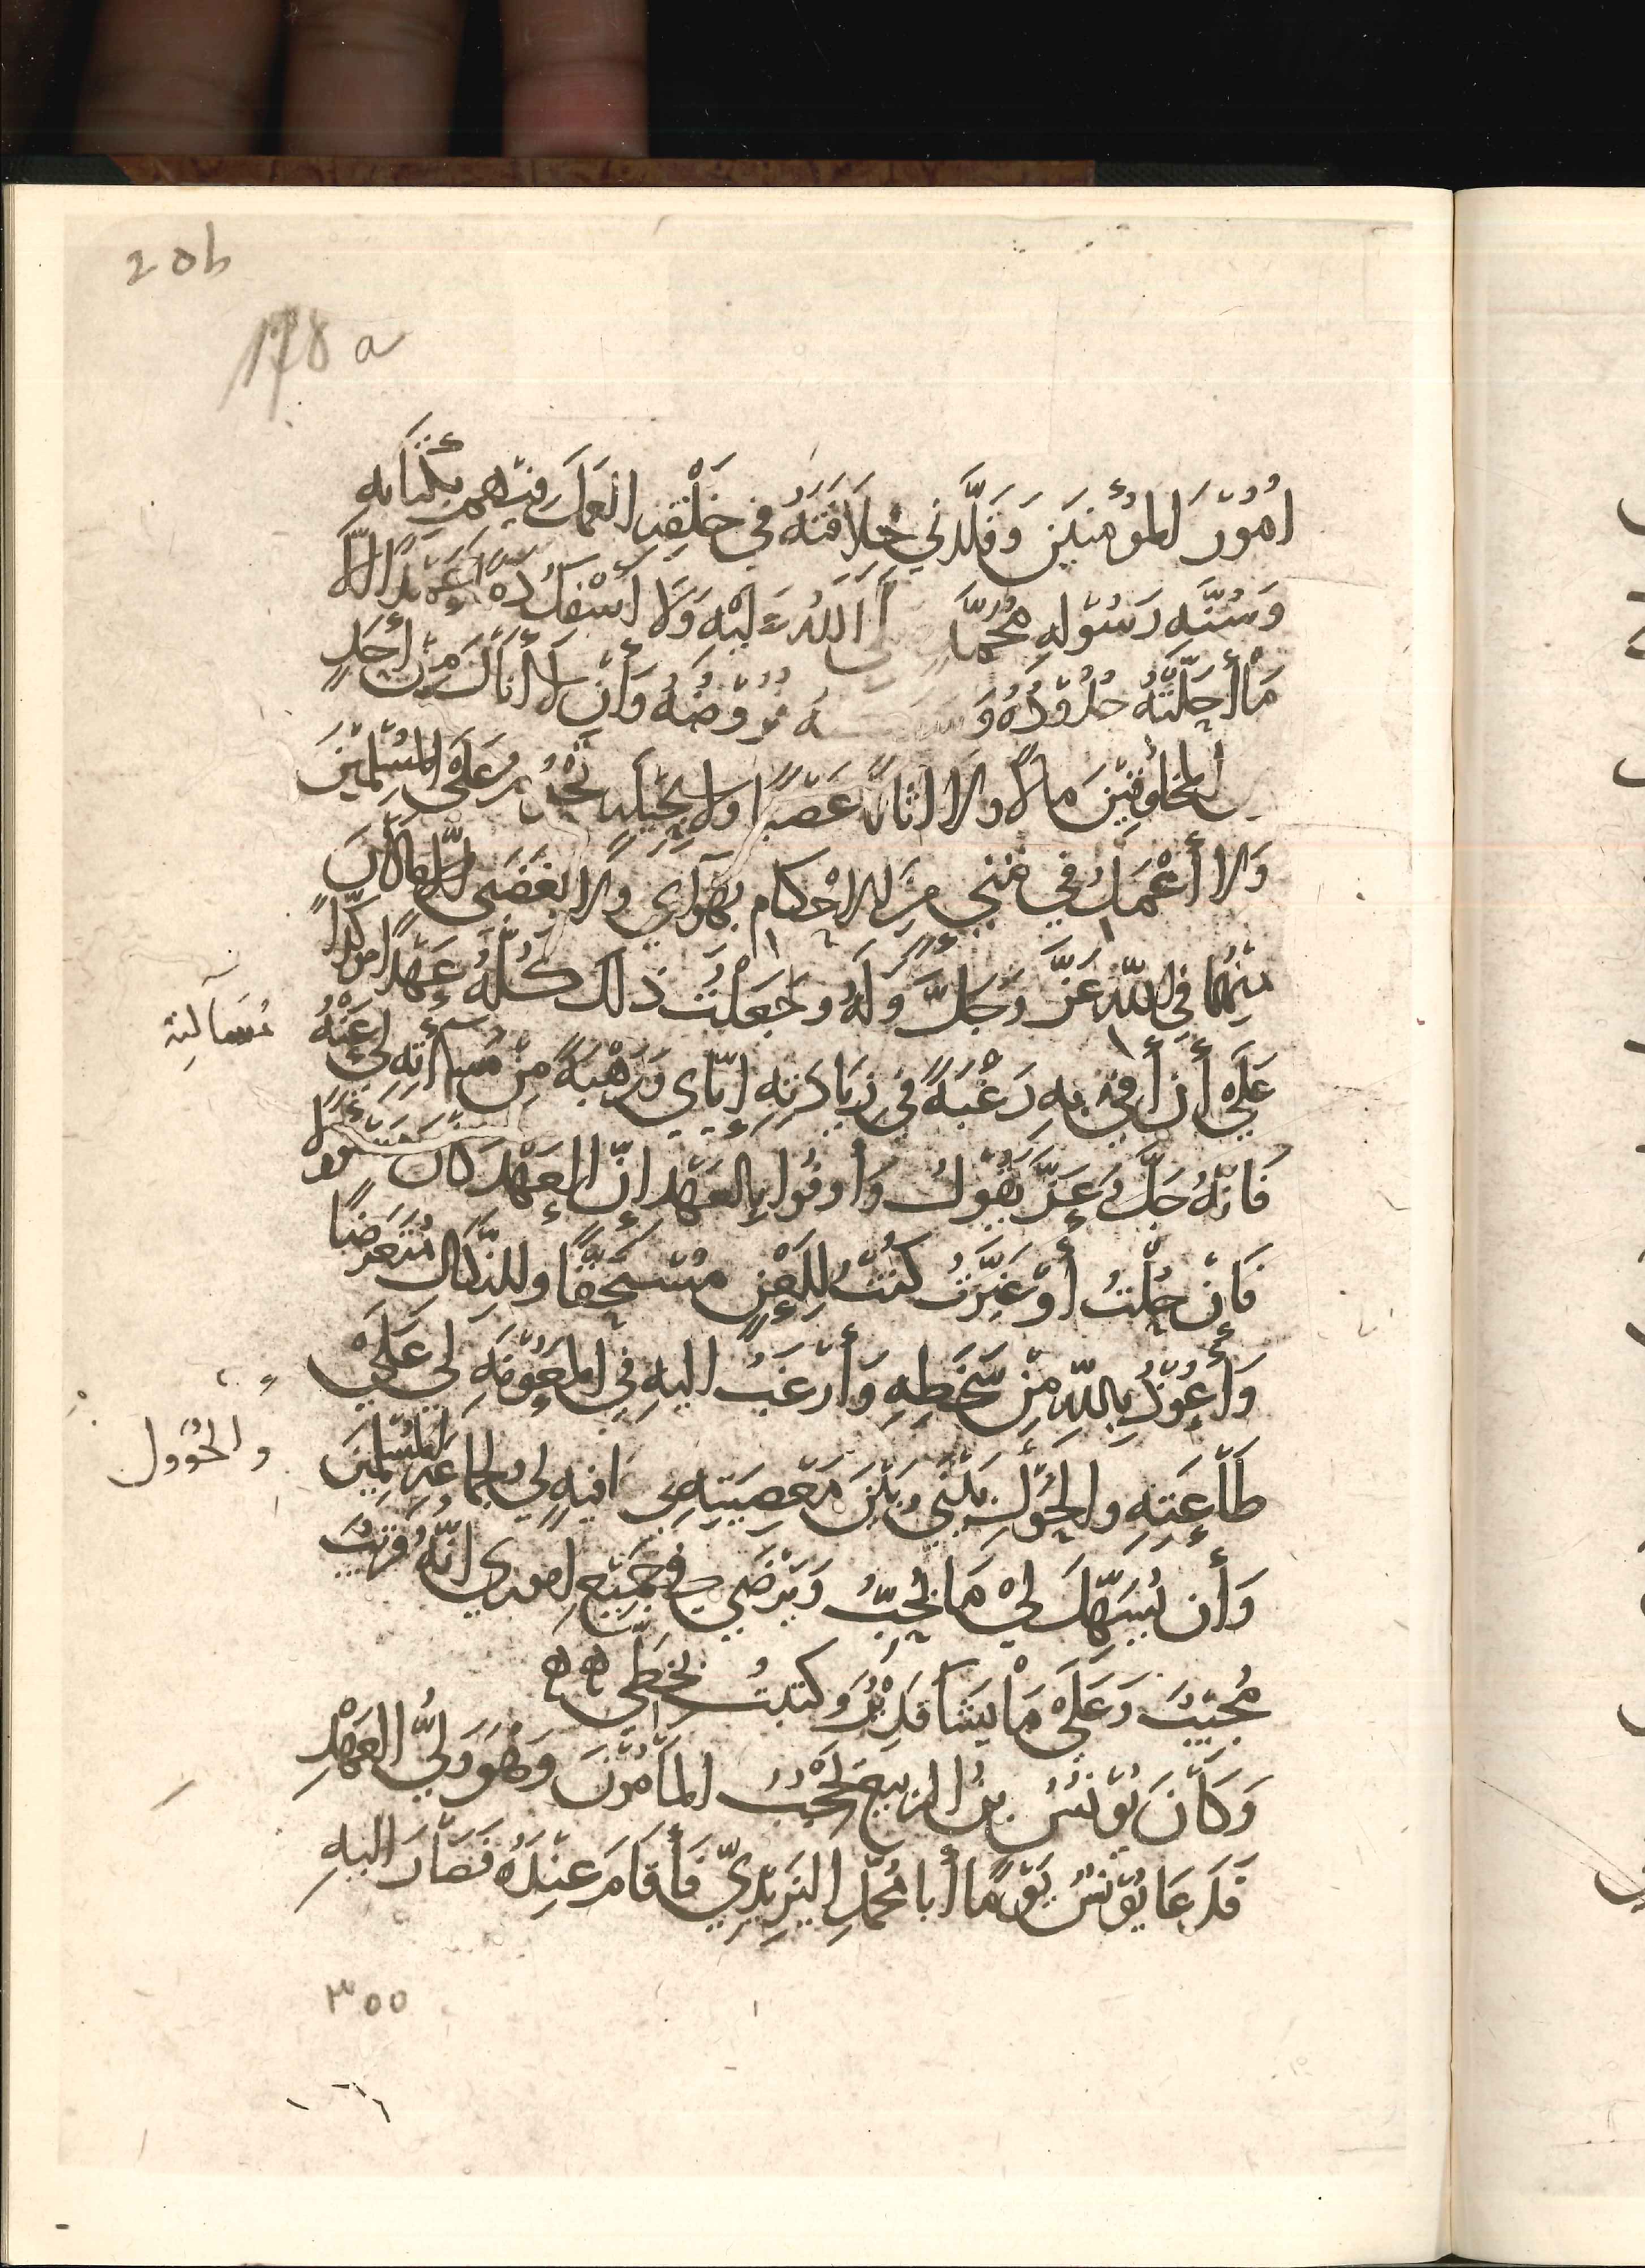 20b
178 a
اُمُوْرَ المُؤْمِنِيْنَ وَقَلَّدَنِي خِلَافَتَهُ فِي خَلْقِهِ العَمَلَ فِيْهِمْ بِكِتَابِهِ
وَسُنَّةِ رَسُوْلِهِ مُحَمَّدٍ صلى اللهُ عَلَيْهِ وَلَا أَسْفِكُ دَمًا عَمْدًا الَّا
مَا أَحَلَّتْهُ حُدُوْدُهُ وَ فُرُوْضُهُ وَأَنْ لَا أَنَالَ مِنْ أَحَدٍ
من المخلوقِيْنَ مالًا ولا اثاثًا غَصْبًا ولا بِحِيْلَةٍ تَحْرُمُ عَلَى المُسْلِمِيْنَ
وَلا أَعْمَلُ في شئٍ مِنَ الاحْكام بهَوَاي ولا بغَضَبي الّا ما كان
منهُمَا فِي اللهِ عَزَّ وَجَلَّ وَلَهُ وجَعَلْتُ ذلك كُلَّهُ عَهْدًا مؤكدًا
عَلَيَّ أَن أَفِيَ بِهِ رَغْبَةً فِي زِيَادَتِهِ إيّاي وَرَهْبَةً مِنْ مُسآءلتِهِ لي عَنْهُ
مُسَآلتِه
فَانّهُ جَلَّ وَعَزَّ يَقُوْلُ وَأوفُوا بِالعَهْدِ إنَّ العَهْدَ كَانَ مَسْؤُولًا
فَانْ حُلْتُ أَوْ غَيَّرْتُ كُنْتُ لِلغِيَرِ مُسْتَحِقًّا وللنّكَالِ مُتَعَرِّضًا
وَأَعُوْذُ بِاللهِ مِنْ سَخَطِهِ وَأَرْغَبُ اليهِ فِي المَعُوْنَةِ لي عَلَى
طَاعَتِهِ وَالحَؤُلِ بَيْنِي وبَيْنَ مَعْصِيَتِهِ في عافيةٍ لي ولجماعَةِ المُسْلِمِيْنَ
والحُؤُول
وَأَن يُسَهِّلَ لِيْ مَا يُحِبُّ وَيَرْضَى في جَمِيْعِ امورى انّهُ قَرِيْبٌ
مُجِيْبٌ وَعَلَى مَا يَشَا قَدِيْرٌ وَكتبتُ بخَطِّي هه
وَكَانَ يُوْنُسُ بنُ الربيع يَحْجُبُ المَأمُوْنَ وَهُوَ وَلِيُّ العَهْدِ
فَدَعَا يُوْنُسُ يَوْمًا أَبا مُحَمَّدٍ اليَزِيْدِيَّ فَأَقامَ عِنْدَهُ فَصَارَ اليهِ
٣٥٥